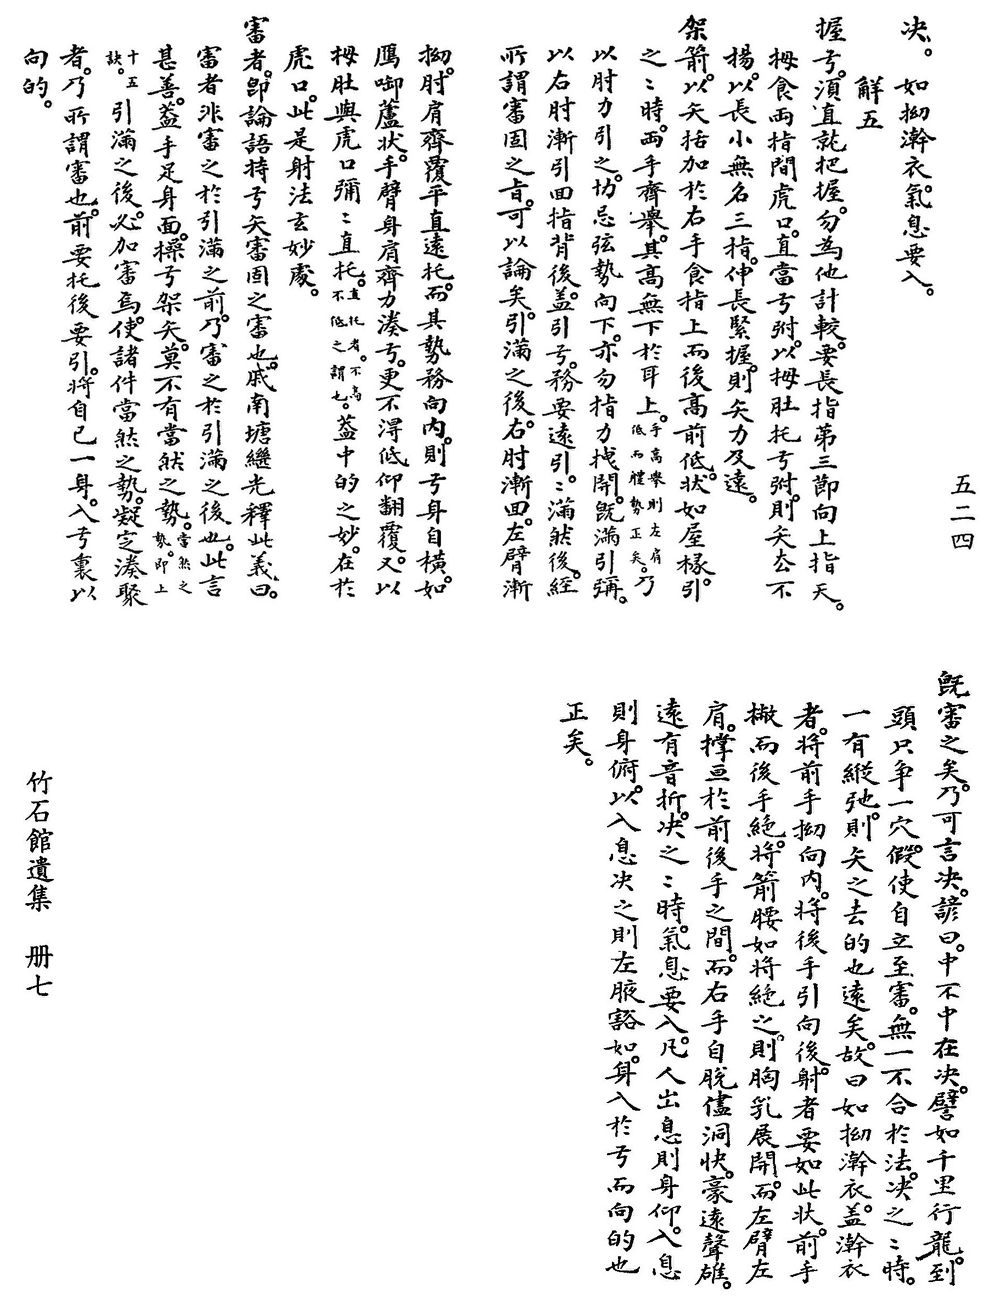 五二四
决。如拗澣衣。氣息要入。
解五
握弓。須直就把握。勿為他計較。要長指第三節向上指天。
拇食兩指間虎口。直當弓弣。以拇肚托弓弣。則矢厺不
揚。以長小無名三指。伸長緊握。則矢力及遠。
架箭。以矢括加於右手食指上而後高前低。状如屋椽。引
之〻時。両手齊擧。其高無下於耳上。手高擧則左肩低而體勢正矣。乃
以肘力引之。切忌弦勢向下。亦勿指力找開。旣滿引彌。
以右肘漸引回指背後。盖引弓。務要遠引〻滿然後。經
所謂審固之旨。可以論矣。引滿之後。右肘漸回。左臂漸
拗。肘肩齊覆。平直遠托。而其勢務向内。則弓身自横。如
鴈啣蘆状。手臂身肩。齊力湊弓。更不淂低仰翻覆。又以
拇肚與虎口彌〻直托。直托者。不高不低之謂也。葢中的之妙。在於
虎口。此是射法玄妙處。
審者。卽論語持弓矢審固之審也。戚南塘繼光釋此義。曰。
審者非審之於引滿之前。乃審之於引滿之後也。此言
甚善。葢手足身面。操弓架矢。莫不有當然之勢。當然之勢。卽上
十五訣。引滿之後。必加審焉。使諸件當然之勢。凝定湊聚
者。乃所謂審也。前要托後要引。將自已一身。入弓裏以
向的。
旣審之矣。乃可言决。諺曰。中不中在决。譬如千里行龍。到
頭只争一穴。假使自立至審。無一不合於法。决之〻時。
一有縱弛。則矢之去的也遠矣。故曰如拗澣衣。盖澣衣
者。將前手拗向内。將後手引向後。射者要如此状。前手
撇而後手絶。將箭腰如將絶之。則胸乳展開。而左臂左
肩。撑亘於前後手之間。而右手自脫儘洞快。豪遠聲雄。
遠有音折。决之〻時。氣息要入。凡人出息則身仰。入息
則身俯。以入息决之則左腋豁如。身入於弓而向的也
正矣。
竹石館遺集　冊七